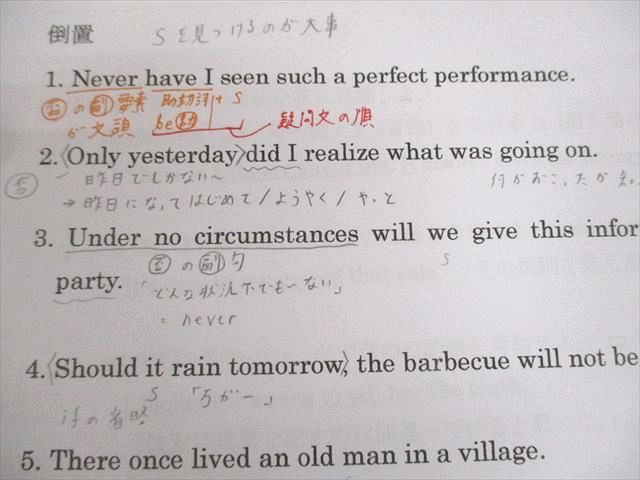 倒置 Sを見つけるのが大事
1. Never have I seen such a perfect performance.
否の副要素 助動詞+S
が文頭 be動 疑問文の順
2. 〈Only yesterday〉 did I realize what was going on.
否 昨日でしかない〜
→昨日になってはじめて/ようやく/やっと
3. Under no circumstances will we give this infor
S
party. 否の副句
「どんな状況下でも〜ない」
= never
4. 〈Should it rain tomorrow〉, the barbecue will not be
S 「万が一」
ifの省略
5. There once lived an old man in a village.